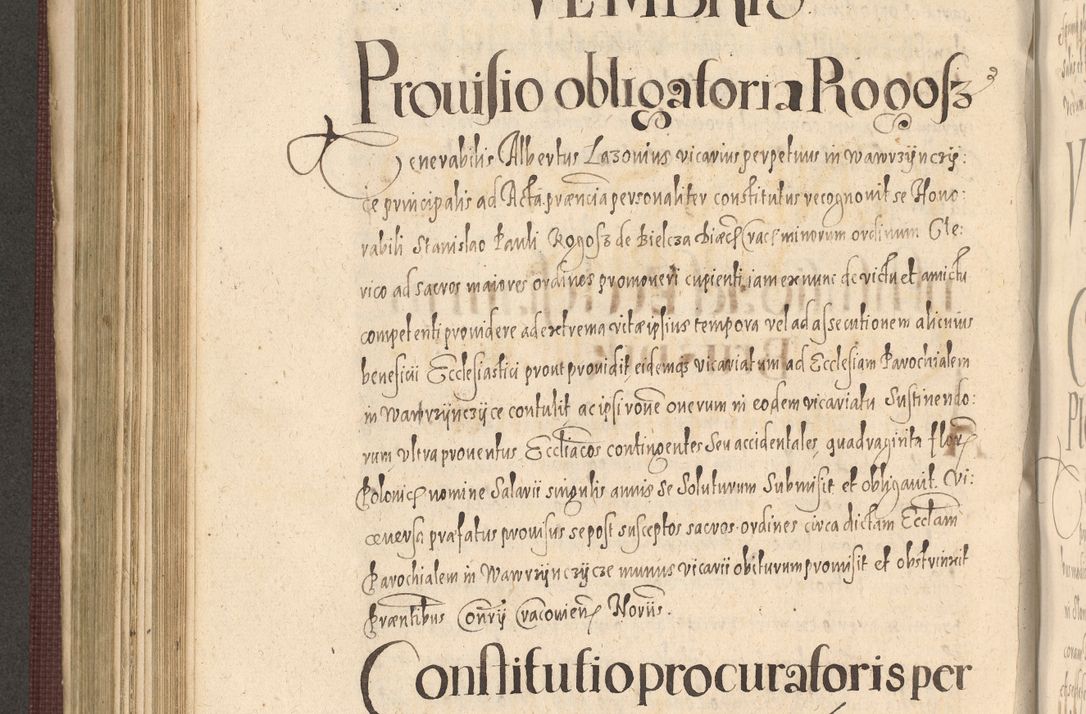 VEMBRIS
Prouisio obligatoria Rogosz
Venerabilis Albertus Lazonius vicarius perpetuus in wawrzijnczij:
ce principalis ad Acta præncia personaliter constitutus recognouit se Hono:
rabili Stanislao Pauli Rogosz de Bielcza minorum ordinum Cle:
rico ad sacros maiores ordines promoueri cupienti iam ex nunc de victu et amictu
competenti prouidere ad extrema vitæ ipsius tempora vel ad assecutionem alicuius
beneficii Ecclesiastici prout prouidit, eidemqз vicariatum ad Ecclesiam Parochialem
in Wawrzijnczijce contulit ac ipsi rone onerum in eodem vicariatu Sustinendo:
rum, vltra prouentus Eccliacos contingentes seu accidentales, quadraginta flor
Polonic nomine Salarii singulis annis se Soluturum Submisit et obligauit. Vi:
ceuersa præfatus prouisus se post susceptos sacros ordines circa dictam Ecclam
Parochialem in Wawrzijnczijcze munus vicarii obiturum promisit et obstrinxit
Præntibus Conrij Cracouien Noriis.
Constitutio procuratoris per